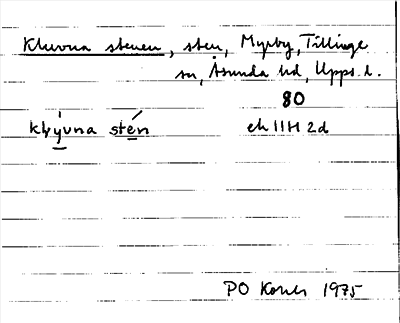 Kluvna stenen, sten, Myrby, Tillinge
sn, Åsunda hd, Upps. l.
80
klyvna stén ek 11H 2d
PO Korner 1975